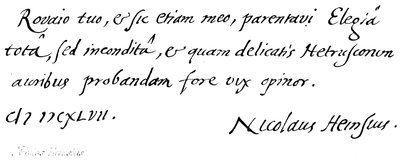 Rovaio tuo, & sic etiam meo, parentavi Elegiâ
totâ, sed inconditâ, & quam delicatis Hetruscorum
auribus probandam fore vix opinor.
Nicolaus Heinsius.